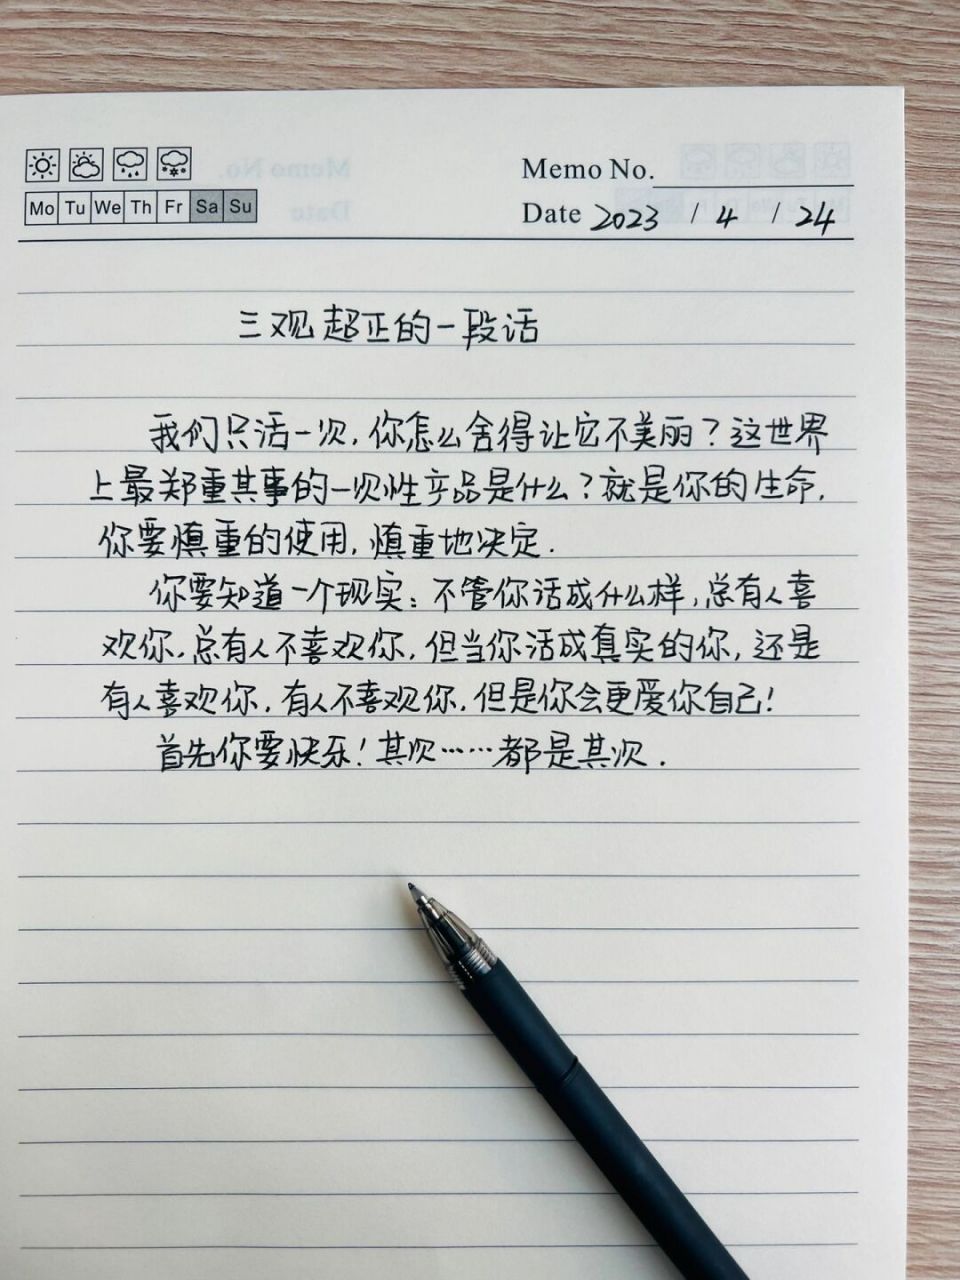 Memo No.
Mo Tu We Th Fr Sa Su
Date 2023 / 4 / 24
三观超正的一段话
我们只活一次,你怎么舍得让它不美丽?这世界
上最郑重其事的一次性产品是什么?就是你的生命,
你要慎重的使用,慎重地决定.
你要知道一个现实:不管你活成什么样,总有人喜
欢你,总有人不喜欢你,但当你活成真实的你,还是
有人喜欢你,有人不喜欢你,但是你会更爱你自己!
首先你要快乐!其次……都是其次.